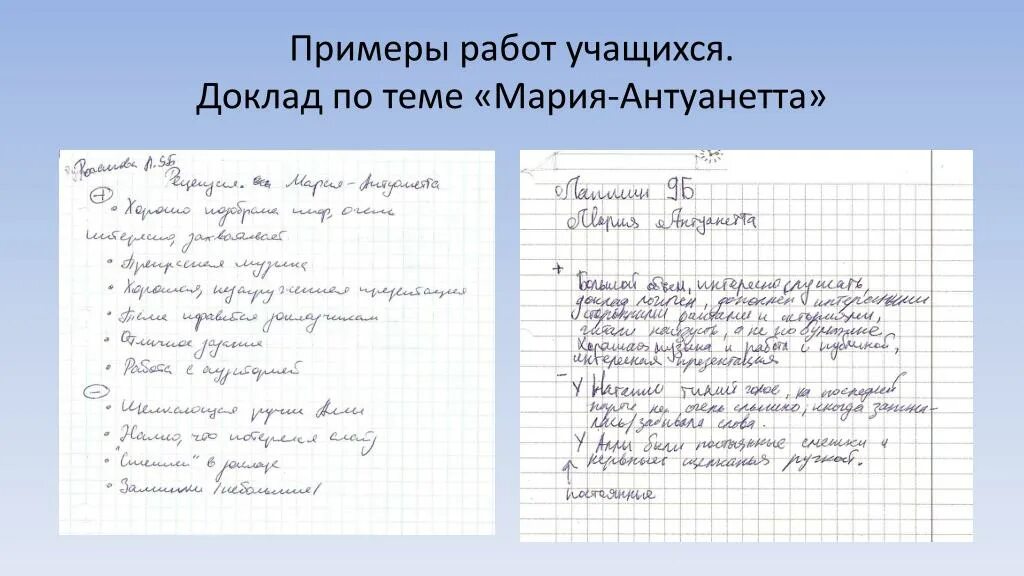 Примеры работ учащихся.
Доклад по теме «Мария-Антуанетта»
Л. 9Б
Рецензия. Мария-Антуанетта
+
• Хорошо подобрана инф, очень
интересно, захватывает
• Прекрасная музыка
• Хорошая, незагруженная презентация
• Тема нравится докладчикам
• Отличное задание
• Работа с аудиторией
-
• Щелкающая ручка Аллы
• Жалко, что потерялся слайд
• "Смешки" в докладе
• Заминки /небольшие/
Лапшин 9Б
Мария Антуанетта
+ Большой объем, интересно слушать,
доклад логичен, дополнен интересными
сторонними фактами и историями,
читали наизусть, а не по бумажке.
Хорошая музыка и работа с публикой,
интересная презентация
- У Наталии тихий голос, на последней
парте не очень слышно, иногда запина-
лась/забывала слова.
У Аллы были постоянные смешки и
нервные щелканья ручкой.
постоянные